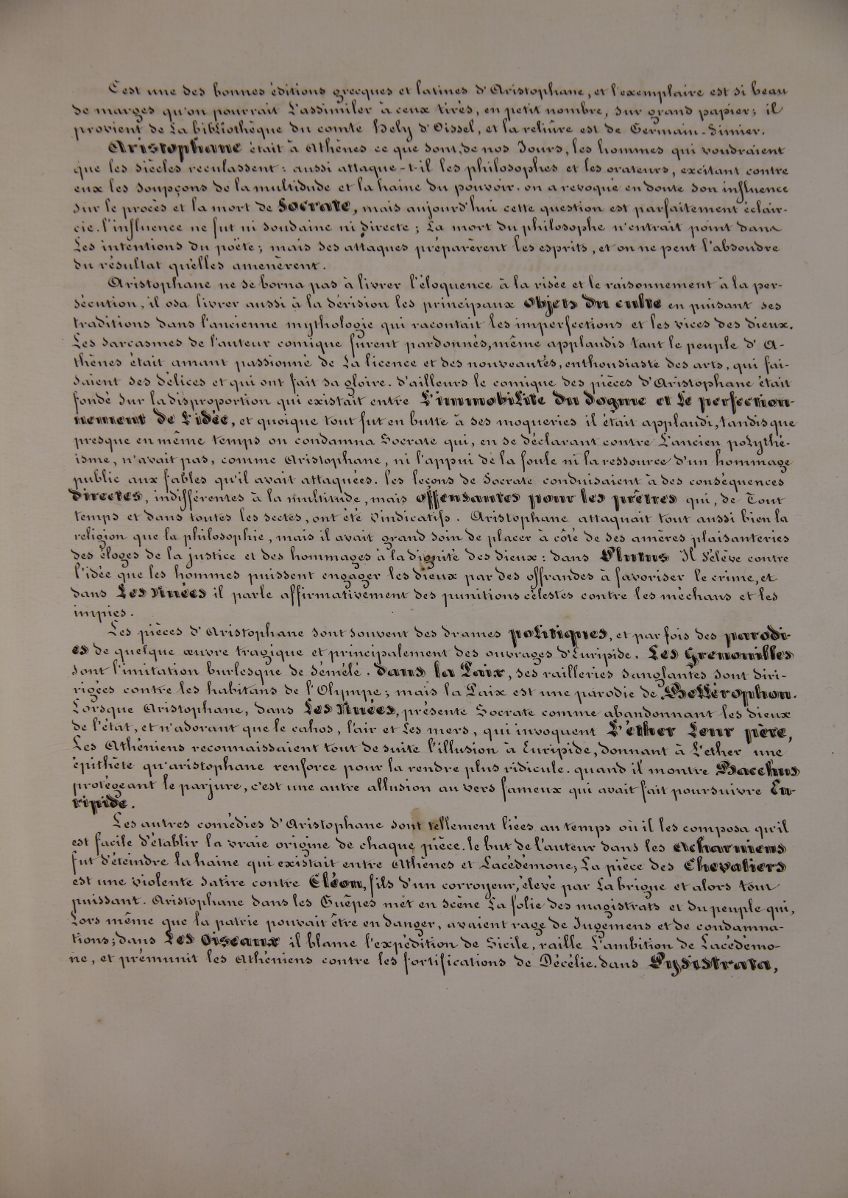 C'est une des bonnes éditions grecques et latines d'Aristophane, et l'exemplaire est si beau
de marges qu'on pourrait l'assimiler à ceux tirés, en petit nombre, sur grand papier; il
provient de la bibliothèque du comte Hely d'Oissel, et la reliûre est de Germain-Simier.
Aristophane était à Athènes ce que sont, de nos jours, les hommes qui voudraient
que les siècles reculassent: aussi attaque-t-il les philosophes et les orateurs, excitant contre
eux les soupçons de la multidude et la haine du pouvoir. on a revoqué en doute son influence
sur le procès et la mort de Socrate, mais aujourd'hui cette question est parfaitement éclair-
cie. l'influence ne fut ni soudaine ni directe; La mort du philosophe n'entrait point dans
Les intentions du poëte; mais ses attaques préparèrent les esprits, et on ne peut l'absoudre
du résultat qu'elles amenèrent.
Aristophane ne se borna pas à livrer l'éloquence à la risée et le raisonnement à la per-
sécution, il osa livrer aussi à la dérision les principaux objets du culte en puisant ses
traditions dans l'ancienne mythologie qui racontait les imperfections et les vices des dieux.
Les sarcasmes de l'auteur comique furent pardonnés, même applaudis tant le peuple d'A-
thènes était amant passionné de la licence et des nouveautés, enthousiaste des arts, qui fai-
saient ses délices et qui ont fait sa gloire. d'ailleurs le comique des pièces d'Aristophane était
fondé sur la disproportion qui existait entre l'immobilité du dogme et le perfection-
nement de l'idée, et quoique tout fut en butte à ses moqueries il était applaudi, tandis que
presque en même temps on condamna Socrate qui, en se déclarant contre l'ancien polythé-
isme, n'avait pas, comme Aristophane, ni l'appui de la foule ni la ressource d'un hommage
public aux fables qu'il avait attaquées. les leçons de Socrate conduisaient à des conséquences
directes, indifférentes à la multitude, mais offensantes pour les prêtres qui, de tout
temps et dans toutes les sectes, ont été vindicatifs. Aristophane attaquait tout aussi bien la
religion que la philosophie, mais il avait grand soin de placer à côté de ses amères plaisanteries
des éloges de la justice et des hommages à la dignité des dieux: dans Plutus Il s'élève contre
l'idée que les hommes puissent engager les dieux par des offrandes à favoriser le crime, et
dans Les Nuées il parle affirmativement des punitions célestes contre les méchans et les
impies.
Les pièces d'Aristophane sont souvent des drames politiques, et par fois des parodi-
es de quelque œuvre tragique et principalement des ouvrages d'Euripide. Les Grenouilles
sont l'imitation burlesque de Sémélé. dans la Paix, ses railleries sanglantes sont diri-
rigées contre les habitans de l'Olympe; mais la Paix est une parodie de Bellérophon.
Lorsque Aristophane, dans Les Nuées, présente Socrate comme abandonnant les dieux
de l'état, et n'adorant que le cahos, l'air et Les mers, qui invoquent L'éther leur père,
Les Athéniens reconnaissaient tout de suite l'illusion à Euripide, donnant à L'ether une
épithète qu'aristophane renforce pour la rendre plus ridicule. quand il montre Bacchus
protégeant le parjure, c'est une autre allusion au vers fameux qui avait fait poursuivre Eu-
ripide.
Les autres comédies d'Aristophane sont tellement liées au temps où il les composa qu'il
est facile d'établir la vraie origine de chaque pièce. le but de l'auteur dans les Acharniens
fut d'éteindre la haine qui existait entre Athènes et Lacédémone; La pièce des Chevaliers
est une violente satire contre Cléon, fils d'un corroyeur, élevé par la brigue et alors tout
puissant. Aristophane dans les Guêpes met en scène La folie des magistrats et du peuple qui,
Lors même que la patrie pouvait être en danger, avaient rage de Jugemens et de condamna-
tions; dans Les Oiseaux il blame l'expédition de Sicile, raille L'ambition de Lacédémo-
ne, et prémunit les Athéniens contre les fortifications de Décélie. dans Lysistrata,